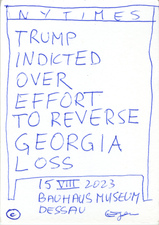 NYTIMES
TRUMP
INDICTED
OVER
EFFORT
TO REVERSE
GEORGIA
LOSS
15 VIII 2023
BAUHAUS MUSEUM
DESSAU
©